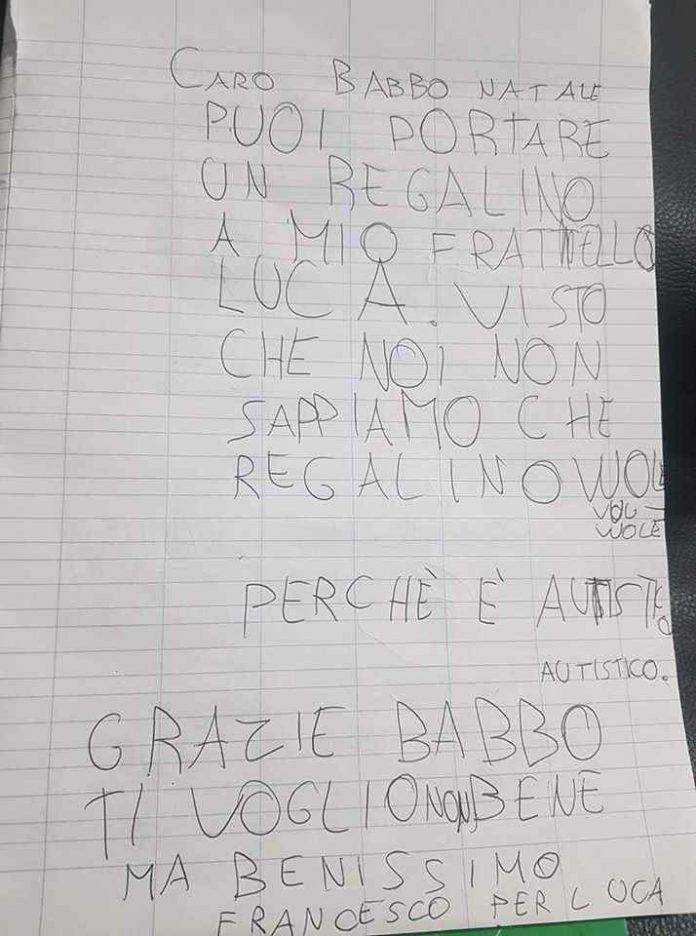 CARO BABBO NATALE
PUOI PORTARE
UN REGALINO
A MIO FRATTELLO
LUCA. VISTO
CHE NOI NON
SAPPIAMO CHE
REGALINO WOLE
VOL-
WOLE
PERCHÈ È AUTISTE
AUTISTICO.
GRAZIE BABBO
TI VOGLIO NON BENE
MA BENISSIMO
FRANCESCO PER LUCA